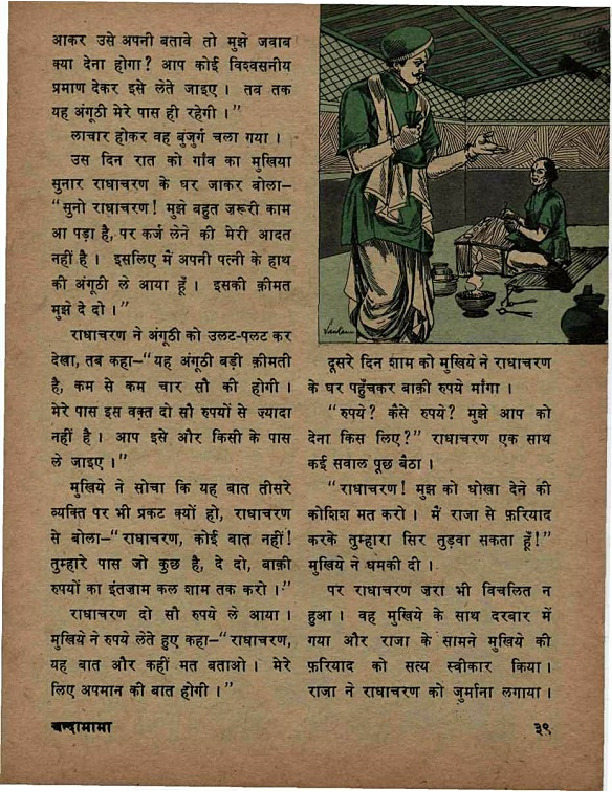 आकर उसे अपनी बतावे तो मुझे जवाब
क्या देना होगा? आप कोई विश्वसनीय
प्रमाण देकर इसे लेते जाइए। तब तक
यह अंगूठी मेरे पास ही रहेगी।"
लाचार होकर वह बुजुर्ग चला गया।
उस दिन रात को गाँव का मुखिया
सुनार राधाचरण के घर जाकर बोला—
"सुनो राधाचरण! मुझे बहुत ज़रूरी काम
आ पड़ा है, पर कर्ज लेने की मेरी आदत
नहीं है। इसलिए मैं अपनी पत्नी के हाथ
की अंगूठी ले आया हूँ। इसकी क़ीमत
मुझे दे दो।"
राधाचरण ने अंगूठी को उलट-पलट कर
देखा, तब कहा—"यह अंगूठी बड़ी क़ीमती
है, कम से कम चार सौ की होगी।
मेरे पास इस वक़्त दो सौ रुपयों से ज्यादा
नहीं है। आप इसे और किसी के पास
ले जाइए।"
मुखिये ने सोचा कि यह बात तीसरे
व्यक्ति पर भी प्रकट क्यों हो, राधाचरण
से बोला—"राधाचरण, कोई बात नहीं!
तुम्हारे पास जो कुछ है, दे दो, बाक़ी
रुपयों का इंतज़ाम कल शाम तक करो।"
राधाचरण दो सौ रुपये ले आया।
मुखिये ने रुपये लेते हुए कहा—"राधाचरण,
यह बात और कहीं मत बताओ। मेरे
लिए अपमान की बात होगी।"
दूसरे दिन शाम को मुखिये ने राधाचरण
के घर पहुँचकर बाक़ी रुपये माँगा।
"रुपये? कैसे रुपये? मुझे आप को
देना किस लिए?" राधाचरण एक साथ
कई सवाल पूछ बैठा।
"राधाचरण! मुझ को धोखा देने की
कोशिश मत करो। मैं राजा से फ़रियाद
करके तुम्हारा सिर तुड़वा सकता हूँ!"
मुखिये ने धमकी दी।
पर राधाचरण ज़रा भी विचलित न
हुआ। वह मुखिये के साथ दरबार में
गया और राजा के सामने मुखिये की
फ़रियाद को सत्य स्वीकार किया।
राजा ने राधाचरण को जुर्माना लगाया।
चन्दामामा
३९